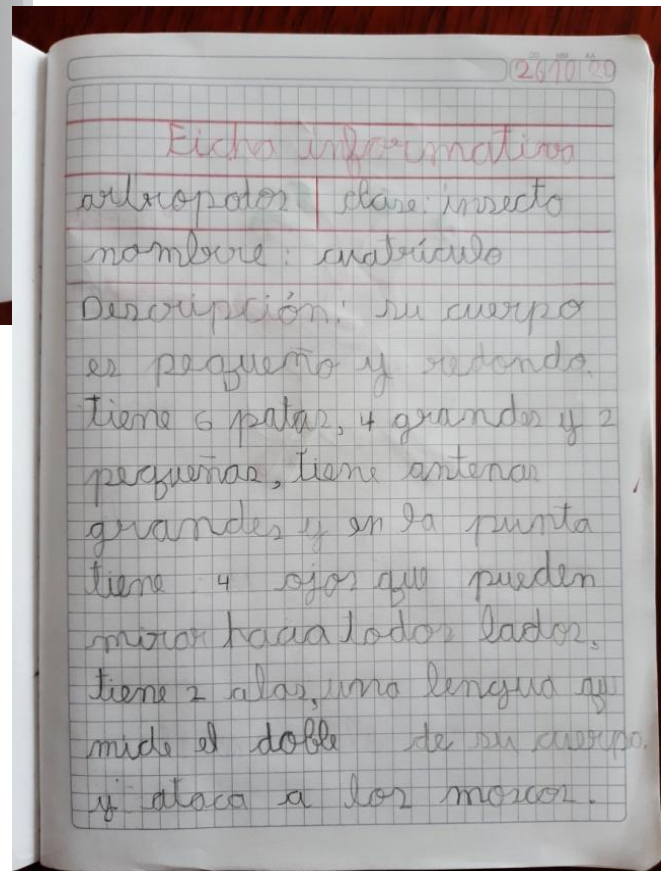 26 10 20
Ficha informativa
artropodos clase: insecto
nombre: cuatrículo
Descripción: su cuerpo
es pequeño y redondo.
tiene 6 patas, 4 grandes y 2
pequeñas, tiene antenas
grandes y en la punta
tiene 4 ojos que pueden
mirar hacia todos lados.
tiene 2 alas, una lengua qu
mide el doble de su cuerpo.
y ataca a los moscos.